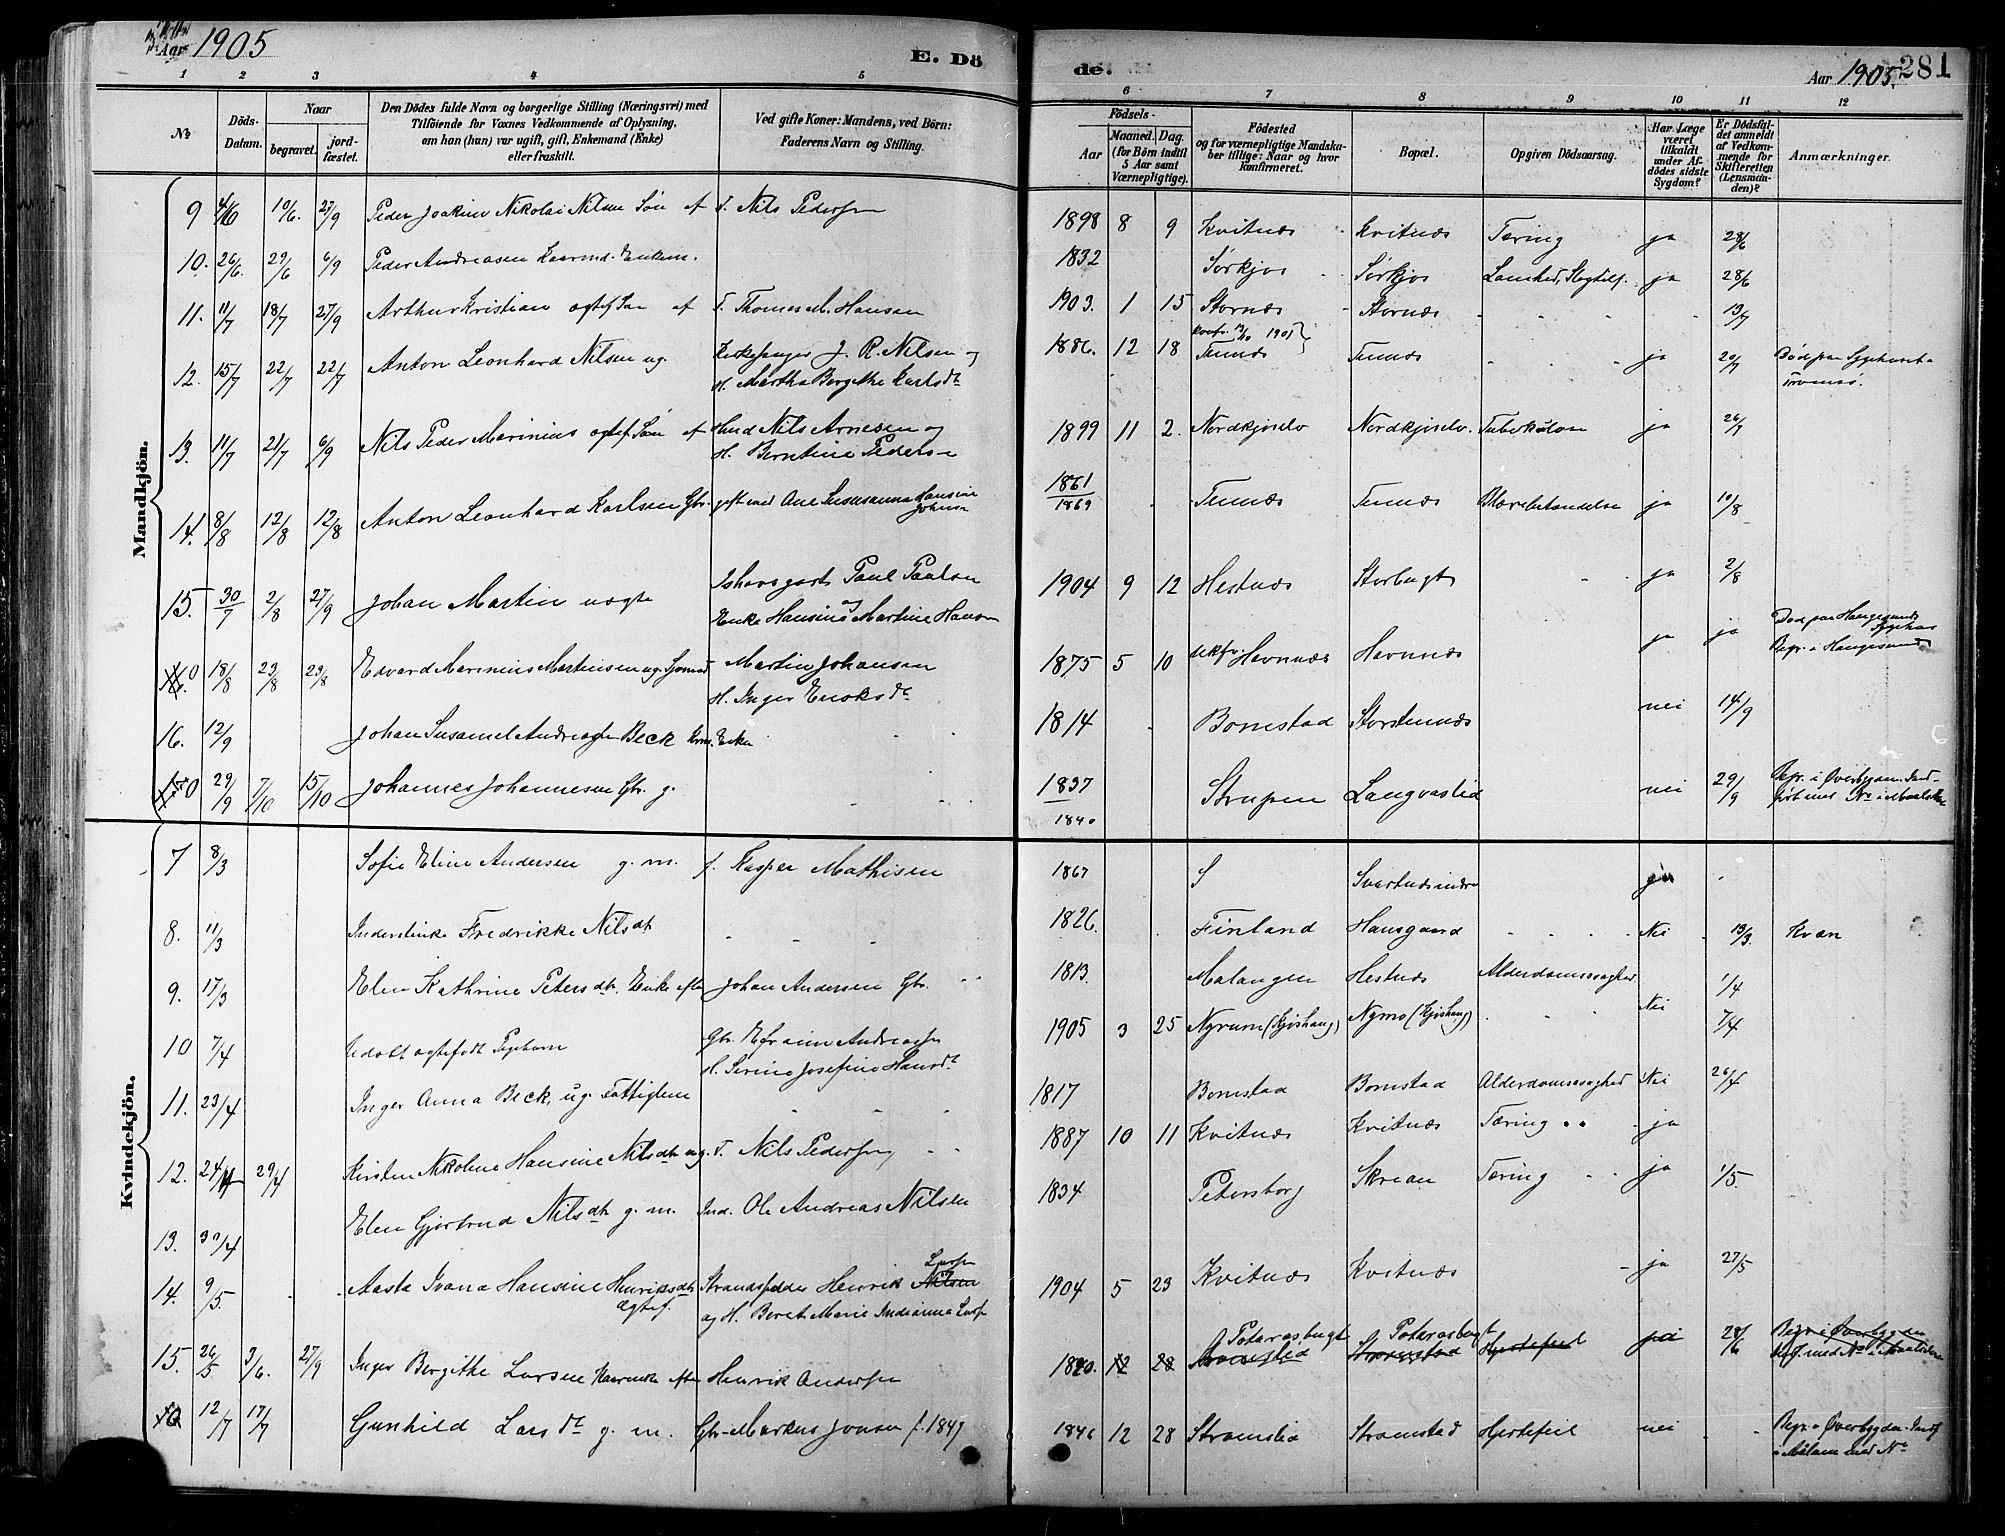 Aar 1905
E. Dö
de.
Aar 1905.
281
1 2 3 4 5 6 7 8 9 10 11 12
№
Döds-Datum.
Naar
begravet.
jord-fæstet.
Den Dödes fulde Navn og borgerlige Stilling (Næringsvei) med
Tilföiende for Voxnes Vedkommende af Oplysning,
om han (hun) var ugift, gift, Enkemand (Enke)
eller fraskilt.
Ved gifte Koner: Mandens, ved Börn:
Faderens Navn og Stilling.
Födsels-
Aar
Maaned. Dag.
(for Börn indtil
5 Aar samt
Værnepligtige).
Födested
og for værnepligtige Mandska-
ber tillige: Naar og hvor
konfirmeret.
Bopæl.
Opgiven Dödsaarsag.
Har Læge
været
tilkaldt
under Af-
dödes sidste
Sygdom?
Er Dödsfal-
det anmeldt
af Vedkom-
mende for
Skifteretten
(Lensman-
den)?
Anmærkninger.
Mandkjön.
9 4/6 10/6. 27/9 Peder Joakim Nikolai Nilsen Søn af F. Nils Pedersen 1898 8 9 Kvitnæs Kvitnæs Tæring ja 28/6
10. 26/6. 29/6 6/9 Peder Andreasen Kaarmd. Enkem. 1832 Sørkjos Sørkjos Lamhed, ja 28/6
11. 11/7 18/7 27/9 Arthur Kristian ægtef Søn af F. Thomas M. Hansen 1903. 1 15 Stornæs Stornæs 13/7
12. 15/7 22/7 22/7 Anton Leonhard Nilsen ug. Kirkesanger J. R. Nilsen og
H. Martha Bergithe Karlsdt 1886. 12 18 konfr. 13/10 1901
Tennæs Tennæs ja 20/7 Død paa Sygehuset
Tromsø.
13. 11/7 21/7 6/9 Nils Peder Marinius ægtef. Søn af Nils Arnesen og
H. Berntine Peders 1899 11 2. Nordkjoselv Nordkjoselv. Tuberkulose ja 26/7
14. 8/8 12/8 12/8 Anton Leonhard Karlsen Gbr. gift med Ane Sususanna Hansine
Johnsn 1861
1869 Tennæs Tennæs Blærebetændelse ja 10/8
15. 30/7 2/8 27/9 Johan Martin uægte Paul Paulsen
Enke Hansine Martine Hansen 1904 9 12 Hestnæs Storbugt ja 2/8
0 18/8 23/8 23/8 Edvard Marinius Martinsen ug. Sjømd Martin Johansen
H. Inger Enoksdt 1875 5 10 ukfr. Havnnæs Havnnæs ja ja Død paa Haugesunds
Sygehus
Begr. i Haugesund
16. 12/9 Johan Susamel Andreasen Beck Enke 1814 Bomstad Storstennæs nei 14/9
0 29/9 7/10 15/10 Johannes Johannesen Gbr. g. 1837
1840 Strupen Langvaslid nei 29/9 Begr. i Øverbygden. Ind-
ført med No i Maalselv
Kvindekjön.
7 8/3 Sofie Eline Andersen g. m. f. Kasper Mathisen 1867 S Svartnæs indre
8. 11/3 Fredrikke Nilsdt 1826. Finland Hansgaard Nei 13/3. Kvæn
9. 17/3 Elen Kathrine Petersdt. Enke efter Johan Andersen Gbr. 1813. Malangen Hestnæs Alderdomssvaghed 1/4
10 7/4 Udøbt ægtefødt Pigebarn Gbr. Efraim Andreasen
H. Sirine Josefine Hansdt 1905 3 25 Nymo (Kjoshaug) Nei 7/4
11. 23/4 Inger Anna Beck, ug. Fattiglem 1817 Bomstad Bomstad Alderdomssvaghed Nei 26/4
12. 24/4 29/4 Kirsten Nikoline Hansine Nilsdt ug. F. Nils Pedersen 1887 10 11 Kvitnæs Kvitnæs Tæring ja
13. 30/4 Elen Gjertrud Nilsdt g. m. Ind. Ole Andreas Nilsen 1834 Petersborg Skrean Tæring ja 1/5
14. 9/5. Aasta Ivana Hansine Henriksdt
ægtef. Strandsidder Henrik Nilsen Larsn
og H. Beret Marie Indianna Larsn 1904 5 23 Kvitnæs Kvitnæs ja 27/5
15. 26/5 3/6. 27/9 Inger Bergithe Larsen Kaarenke efter Henrik Andersen 1820. 12 28 Potarasbugt Potarasbugt
Stromslid Stromstad Hjertefeil 28/6 Begr. i Øverbygden
12/7 17/7 Gunhild Larsdt g. m. Gbr. Markus Jonsen f. 1847 1846 12 28 Stromslid Stromstad Hjertefeil nei Begr. i Øverbygden. Indf
i Målselv med No